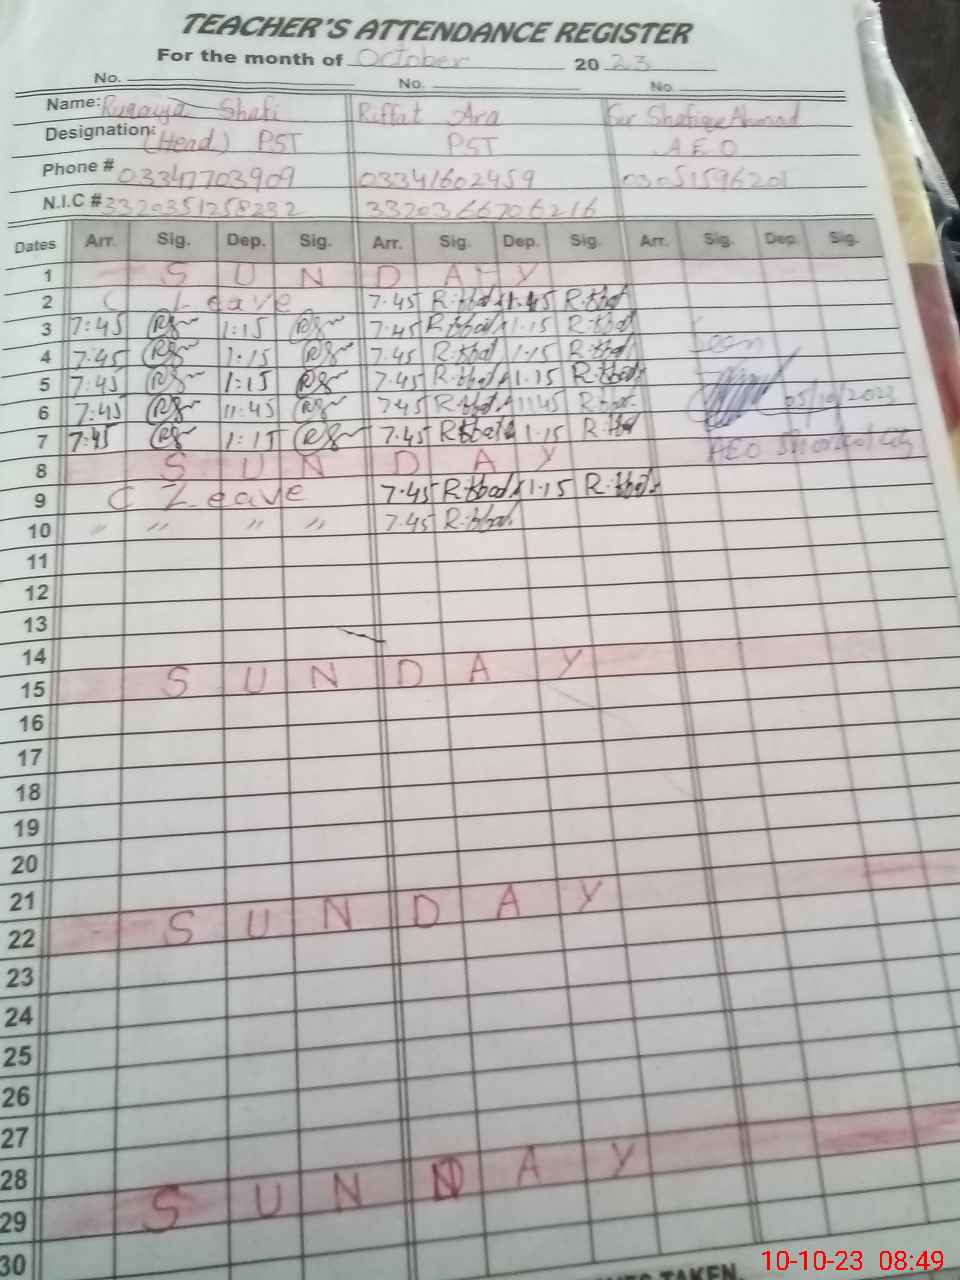 TEACHER'S ATTENDANCE REGISTER
For the month of October 2023
No. No. No.
Name: Ruqaiya Shafi Riffat Ara Sir Shafique Ahmad
Designation: (Head) PST PST A.E.O
Phone # 03347703909 03341602459 03051596201
N.I.C # 3320351258232 3320366706216
Dates Arr. Sig. Dep. Sig. Arr. Sig. Dep. Sig. Arr. Sig. Dep. Sig.
1 S U N D A Y
2 C Leave 7.45 1.45
3 7:45 1:15 7.45 1.15
4 7:45 1:15 7.45 1.15
Seen
5 7:45 1:15 7.45 1.15
6 7:45 11:45 7.45 11.45 05/10/2023
7 7:45 1:15 7.45 1.15
AEO
8 S U N D A Y
9 C Leave 7.45 1.15
10 〃 〃 〃 〃 7.45
11
12
13
14
15 S U N D A Y
16
17
18
19
20
21
22 S U N D A Y
23
24
25
26
27
28
29 S U N D A Y
30
TAKEN
10-10-23 08:49